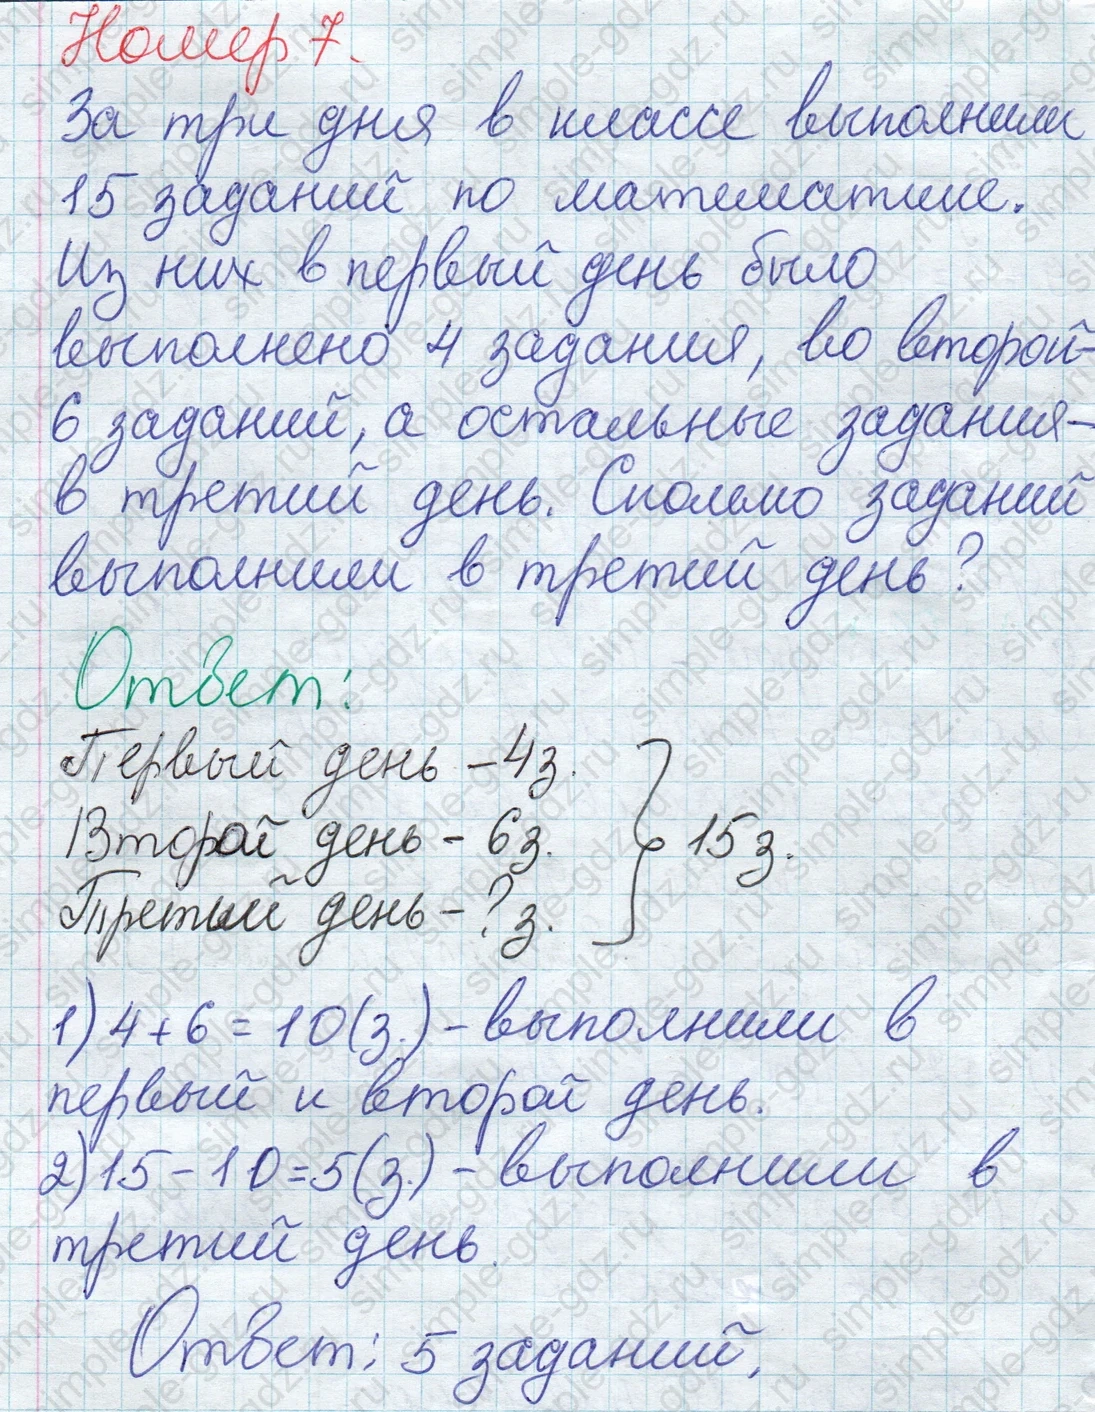 Номер 7.
За три дня в классе выполнили
15 заданий по математике.
Из них в первый день было
выполнено 4 задания, во второй-
6 заданий, а остальные задания-
в третий день. Сколько заданий
выполнили в третий день?
Ответ:
Первый день - 4з.
Второй день - 6з.
Третий день - ? з.
15з.
1) 4+6=10(з.) - выполнили в
первый и второй день.
2) 15-10=5(з.) - выполнили в
третий день.
Ответ: 5 заданий.
simple-gdz.ru